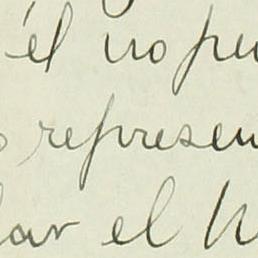 él no pu
represen
lar el